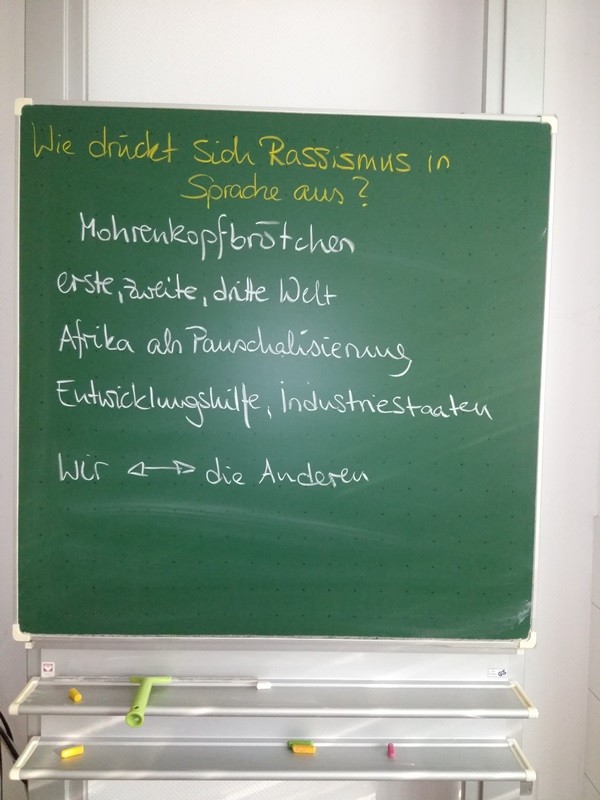 Wie drückt sich Rassismus in
Sprache aus?
Mohrenkopfbrötchen
erste, zweite, dritte Welt
Afrika als Pauschalisierung
Entwicklungshilfe, Industriestaaten
Wir ⟷ die Anderen